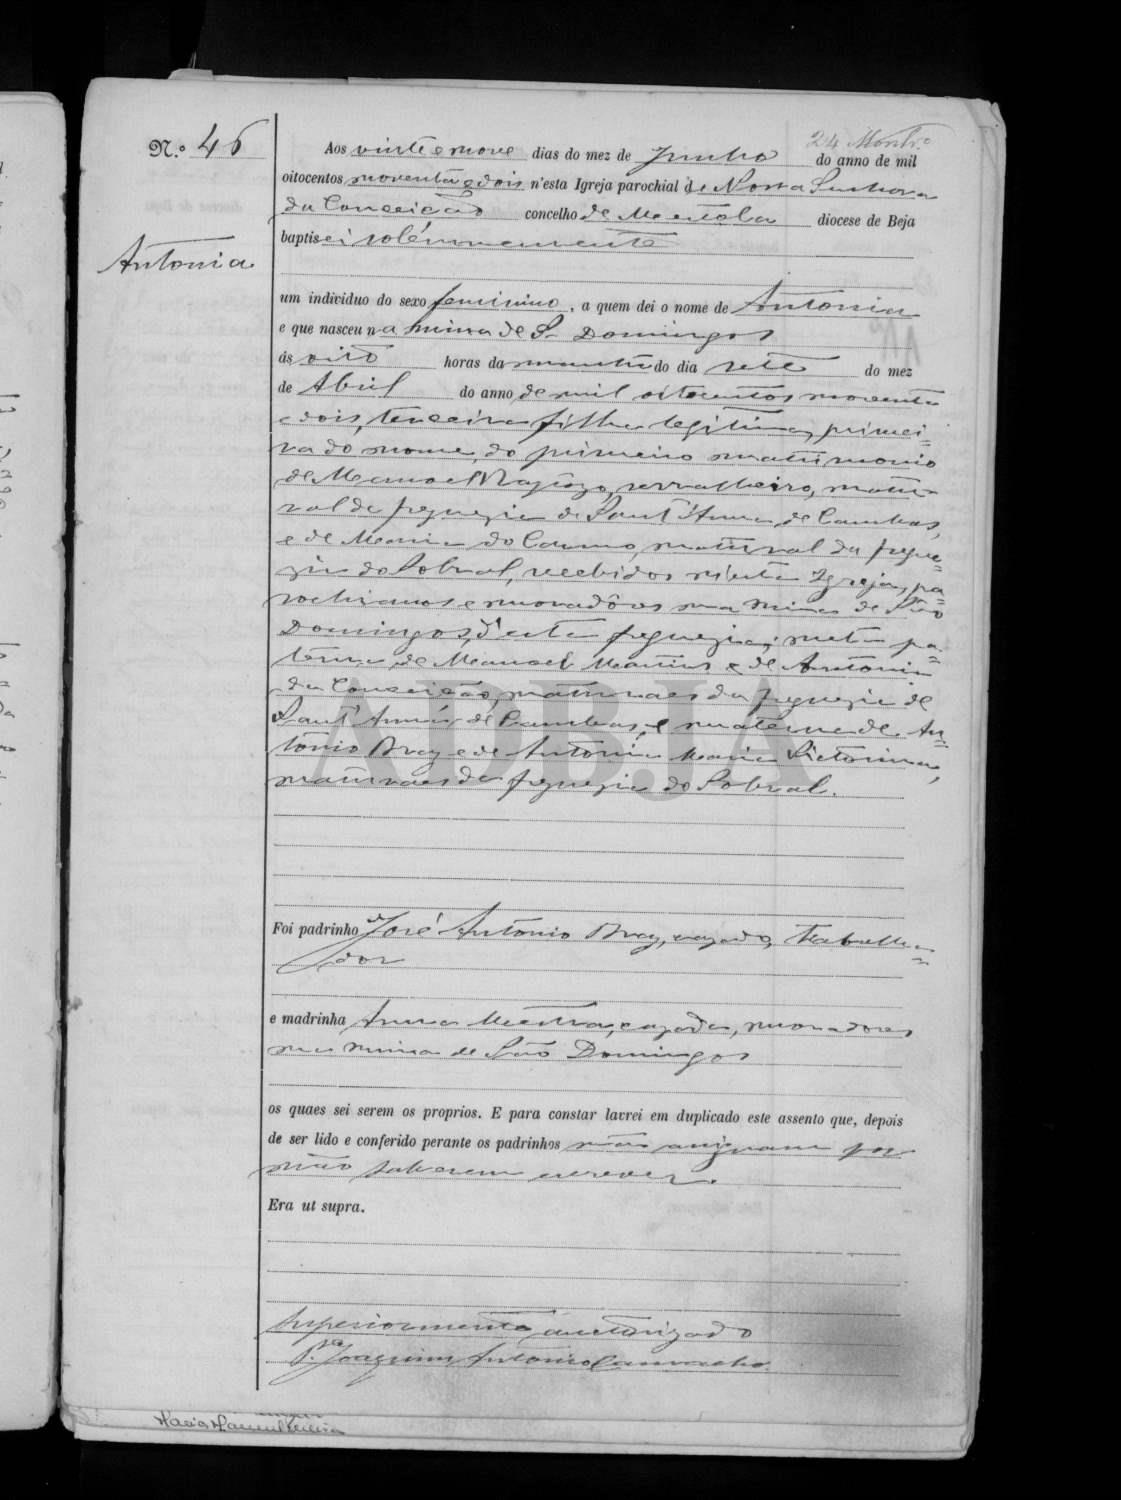 24 Montr.º
N.º 46
Aos vinte e nove dias do mez de Junho do anno de mil
oitocentos noventa e dois n'esta Igreja parochial de Nossa Senhora
da Conceição concelho de Mertola diocese de Beja
baptisei solémnemente
Antonia
um individuo do sexo feminino, a quem dei o nome de Antonia
e que nasceu na mina de S. Domingos
ás oito horas da manhã do dia sete do mez
de Abril do anno de mil oitocentos noventa
e dois, terceira filha legitima, primei=
ra do nome, do primeiro matrimonio
de Manoel, serralheiro, natu=
ral da freguezia de Sant'Anna de Cambas,
e de Maria do Carmo, natural da fregue=
zia do Sobral, recebidos n'esta Igreja, pa=
rochianos e moradôres na mina de São
Domingos, d'esta freguezia; neta pa=
terna de Manoel Martins e de Antonia
da Conceição, naturaes da freguezia de
Sant'Anna de Cambas, e materna de An=
tonio Braz e de Antonia Maria Victorina,
naturaes da freguezia do Sobral.
ADBJA
Foi padrinho José Antonio Braz, cazado, trabalha=
dor
e madrinha Anna Mestra, cazada, moradores
na mina de São Domingos
os quaes sei serem os proprios. E para constar lavrei em duplicado este assento que, depois
de ser lido e conferido perante os padrinhos não assignam por
não saberem escrever.
Era ut supra.
Superiormente auctorizado
P.e Joaquim Antonio Camacho.